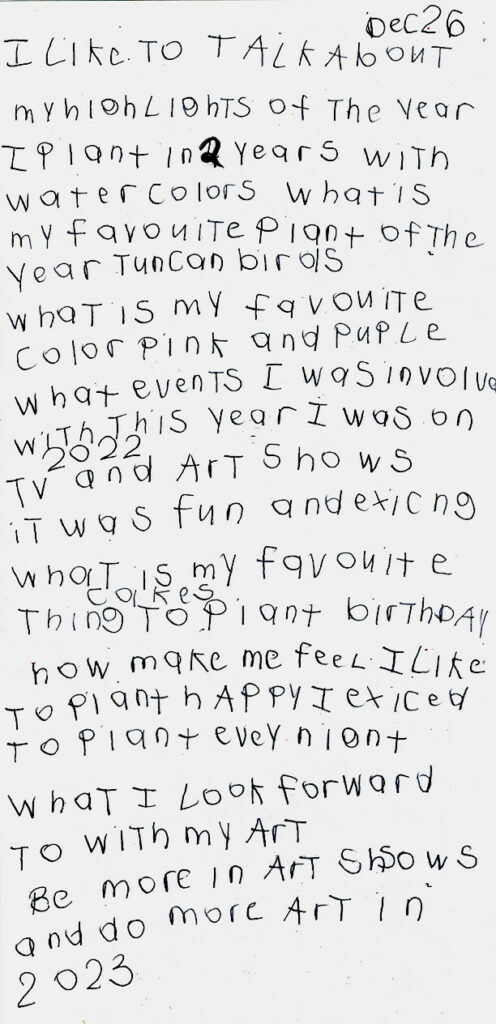 Dec 26
I Like To TALK About
my highLights of The Year
I Piant in 2 years with
water colors what is
my favouite Piant of The
year Tuncan birds
what is my favouite
color Pink and PuPLe
what events I was involve
with This year I was on
2022
TV and ArT shows
iT was fun and exicng
whaT is my favouite
cakes
Thing To Piant birThDAy
how make me feel I Like
To Piant hAPPy I exiced
To Piant evey nignt
whaT I Look forward
To with my ArT
Be more in ArT Shows
and do more ArT in
2023